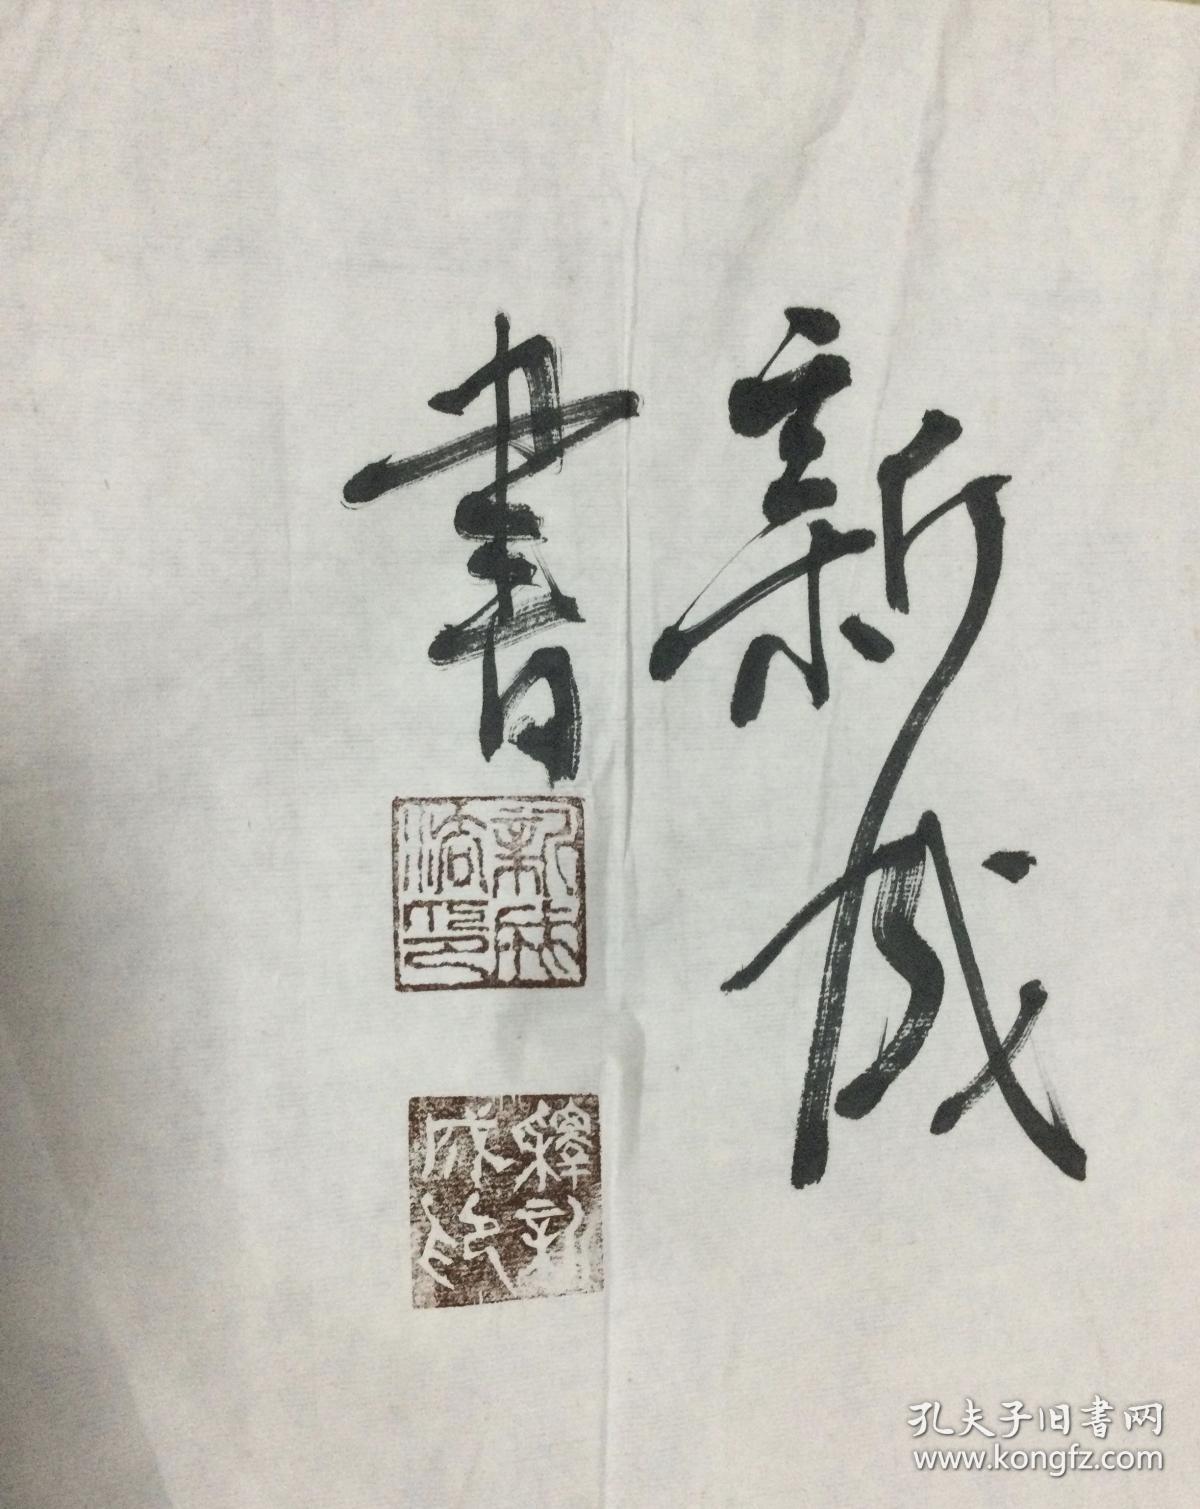 新成
書
釋新
成印
孔夫子旧書网
www.kongfz.com